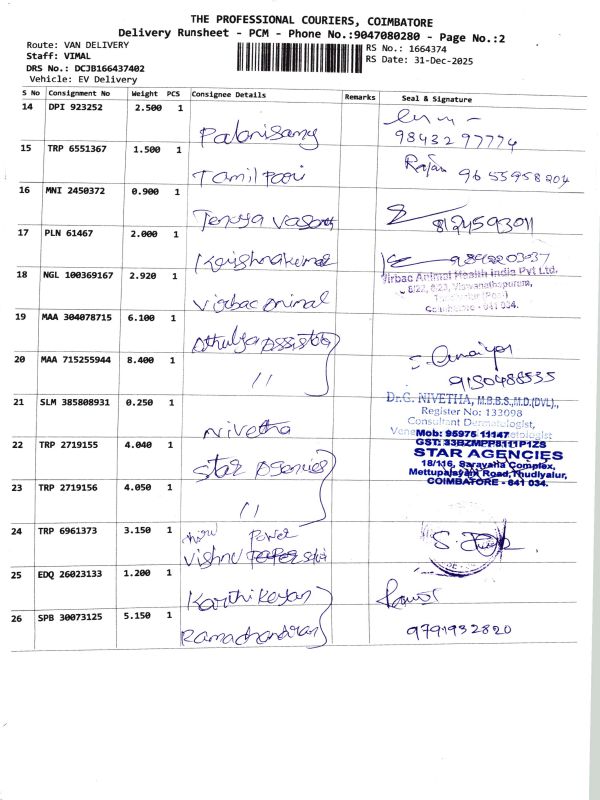 THE PROFESSIONAL COURIERS, COIMBATORE
Delivery Runsheet - PCM - Phone No.:9047080280 - Page No.:2
Route: VAN DELIVERY
RS No.: 1664374
Staff: VIMAL
RS Date: 31-Dec-2025
DRS No.: DCJB166437402
Vehicle: EV Delivery
S No Consignment No Weight PCS Consignee Details Remarks Seal & Signature
14 DPI 923252 2.500 1
Palanisamy 98432 97774
15 TRP 6551367 1.500 1
Tamil Rajan 9655958204
16 MNI 2450372 0.900 1
Vasanth 8124593011
17 PLN 61467 2.000 1
Krishnakumar
18 NGL 100369167 2.920 1
Virbac Animal
Virbac Animal Health India Pvt Ltd.
6/22, 6/23, Viswanathapuram,
Coimbatore - 641 034.
19 MAA 304078715 6.100 1
Athulya Assisted
20 MAA 715255944 8.400 1
"
9150488535
21 SLM 385808931 0.250 1
Nivetha
Dr.G. NIVETHA, M.B.B.S.,M.D.(DVL).,
Register No: 133098
Consultant Dermatologist,
22 TRP 2719155 4.040 1
Star Agencies
Mob: 95975 11147
GST: 33BZMPP8111P1ZS
STAR AGENCIES
18/116, Saravana Complex,
Mettupalayam Road, Thudiyalur,
COIMBATORE - 641 034.
23 TRP 2719156 4.050 1
"
24 TRP 6961373 3.150 1
Vishnu
25 EDQ 26023133 1.200 1
Karthikeyan
26 SPB 30073125 5.150 1
Ramachandran 9791932820